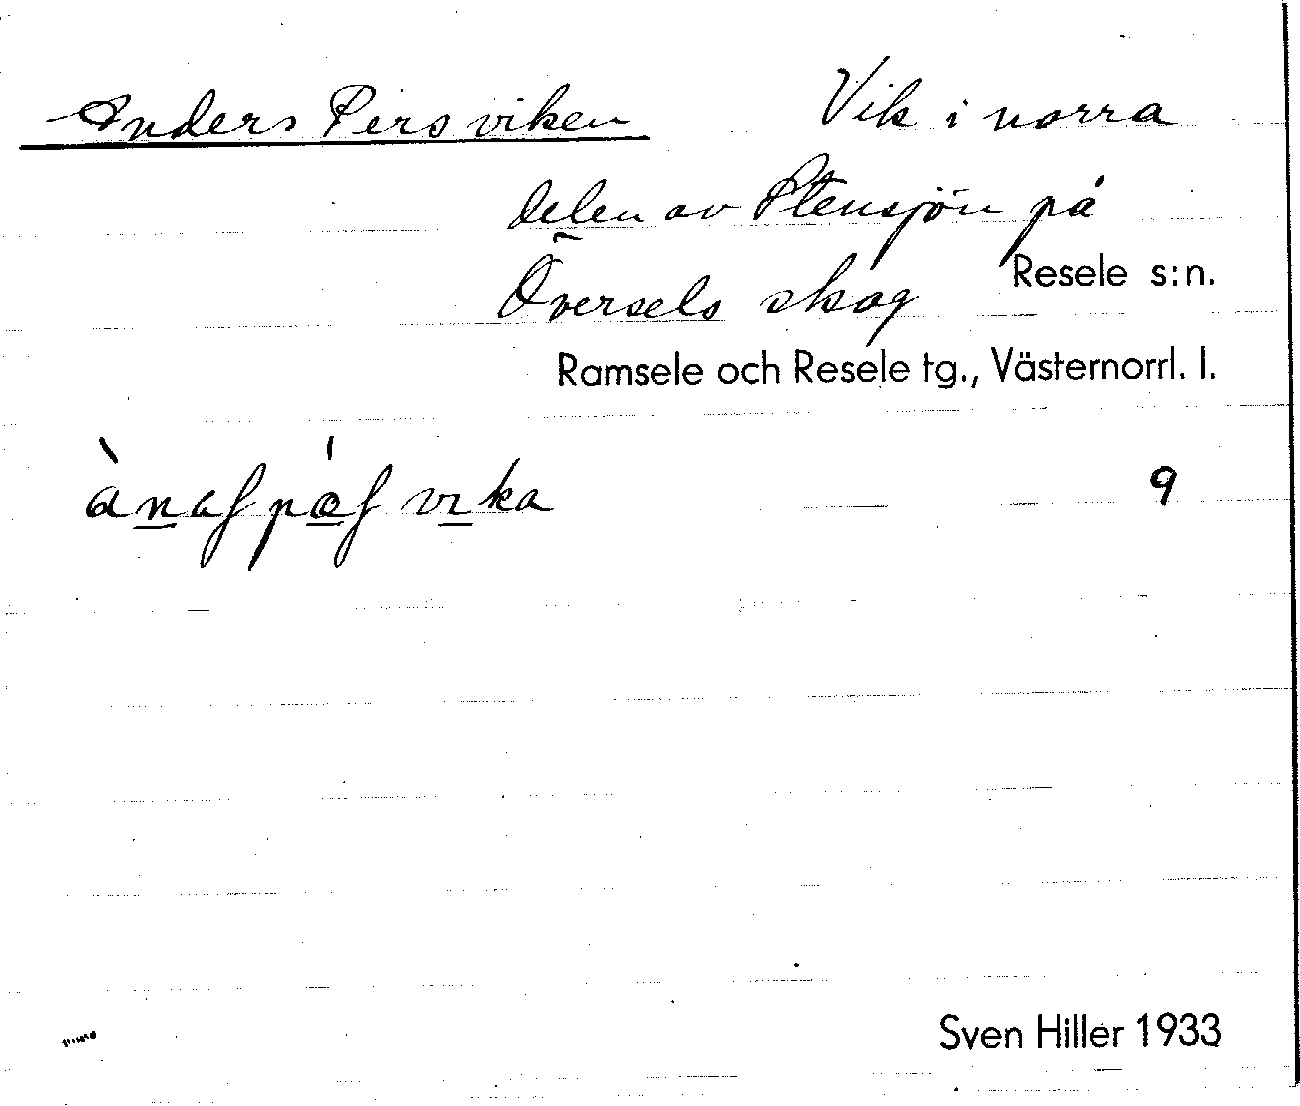 Anders Persviken Vik i norra
delen av Stensjön på
Översels skog Resele s:n.
Ramsele och Resele tg., Västernorrl. l.
9
Sven Hiller 1933